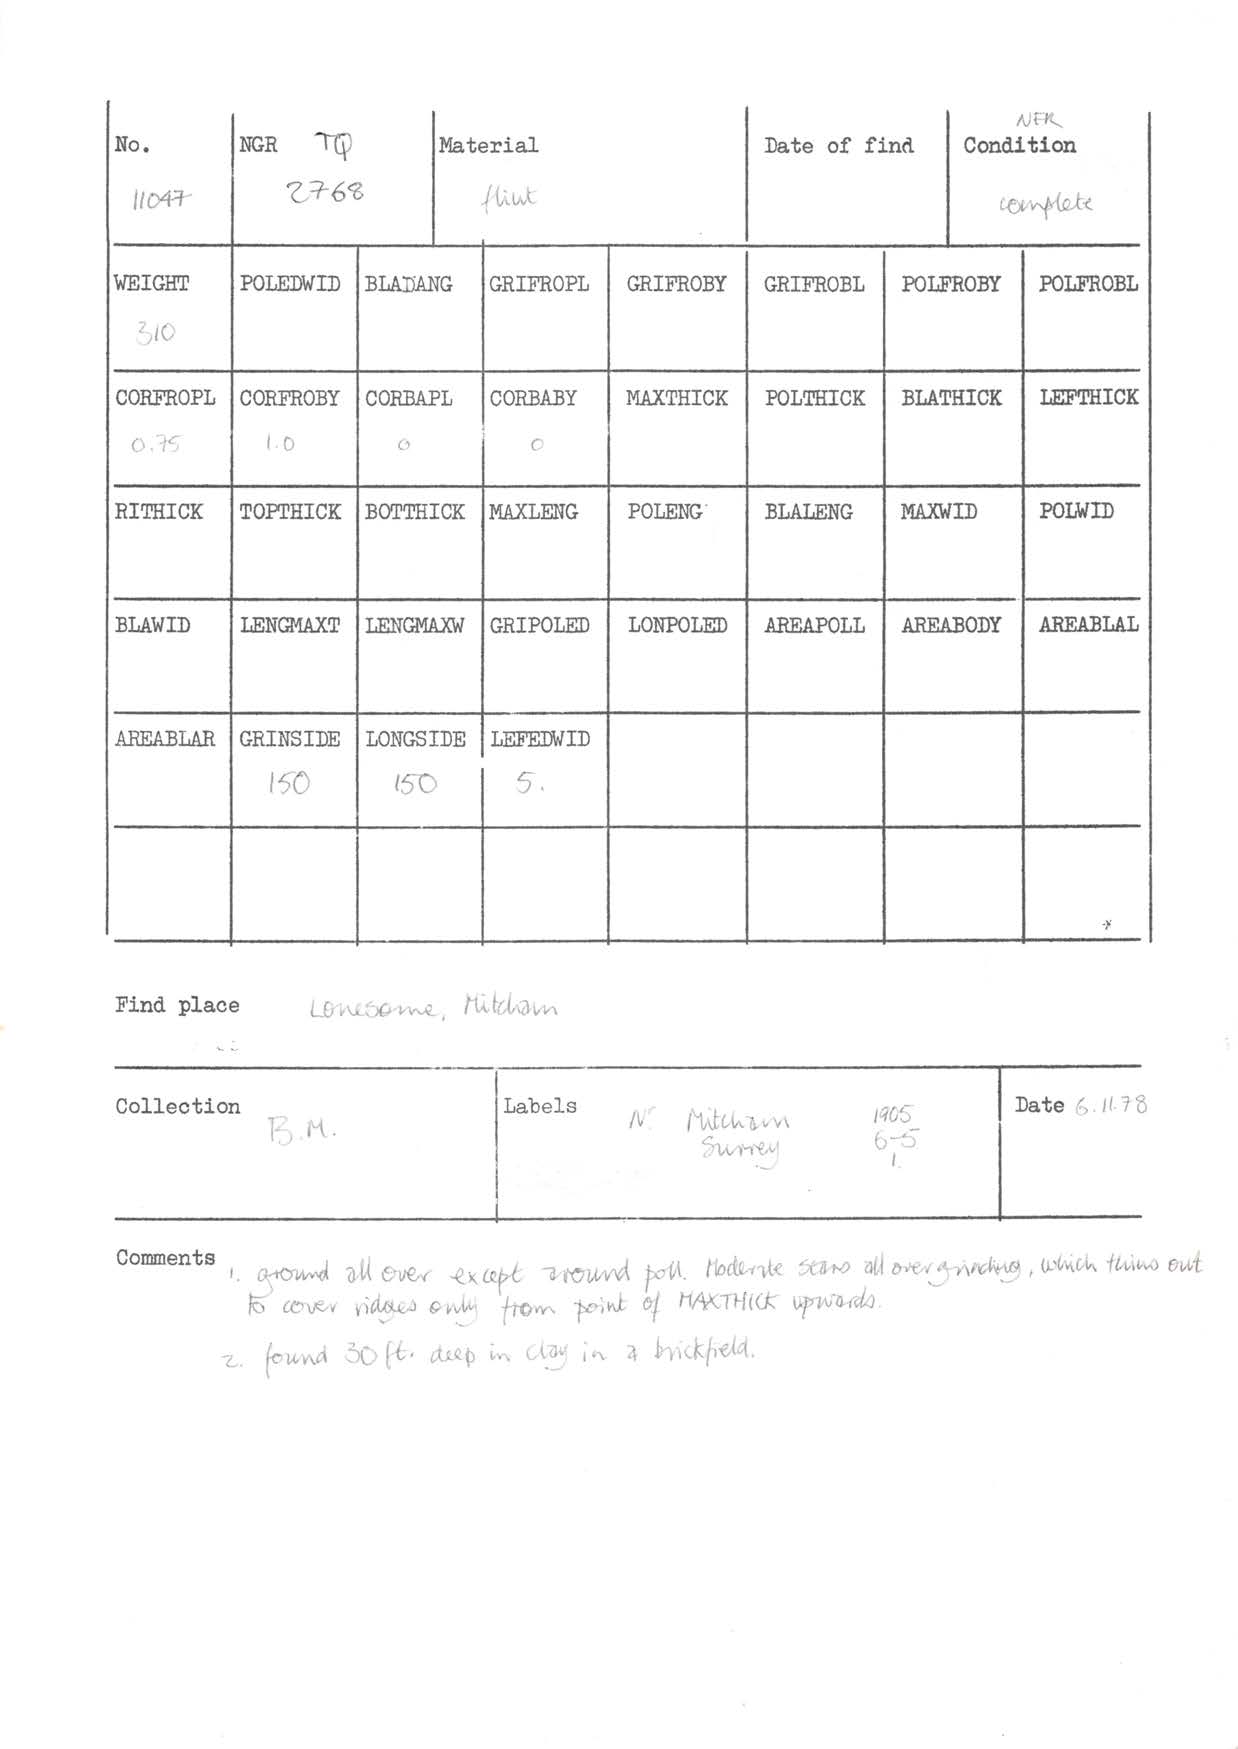 No. NGR TQ Material Date of find NFR Condition
11047 2768 flint complete
WEIGHT POLEDWID BLADANG GRIFROPL GRIFROBY GRIFROBL POLFROBY POLFROBL
310
CORFROPL CORFROBY CORBAPL CORBABY MAXTHICK POLTHICK BLATHICK LEFTHICK
0.75 1.0 0 0
RITHICK TOPTHICK BOTTHICK MAXLENG POLENG BLALENG MAXWID POLWID
BLAWID LENGMAXT LENGMAXW GRIPOLED LONPOLED AREAPOLL AREABODY AREABLAL
AREABLAR GRINSIDE LONGSIDE LEFEDWID
150 150 5.
Find place Lonesome, Mitcham
Collection B.M.
Labels Nr Mitcham
Surrey
1905
6-5
1.
Date 6.11.78
Comments 1. ground all over except around poll. Moderate scars all over grinding, which thins out
to cover ridges only from point of MAXTHICK upwards.
2. found 30 ft. deep in clay in a brickfield.